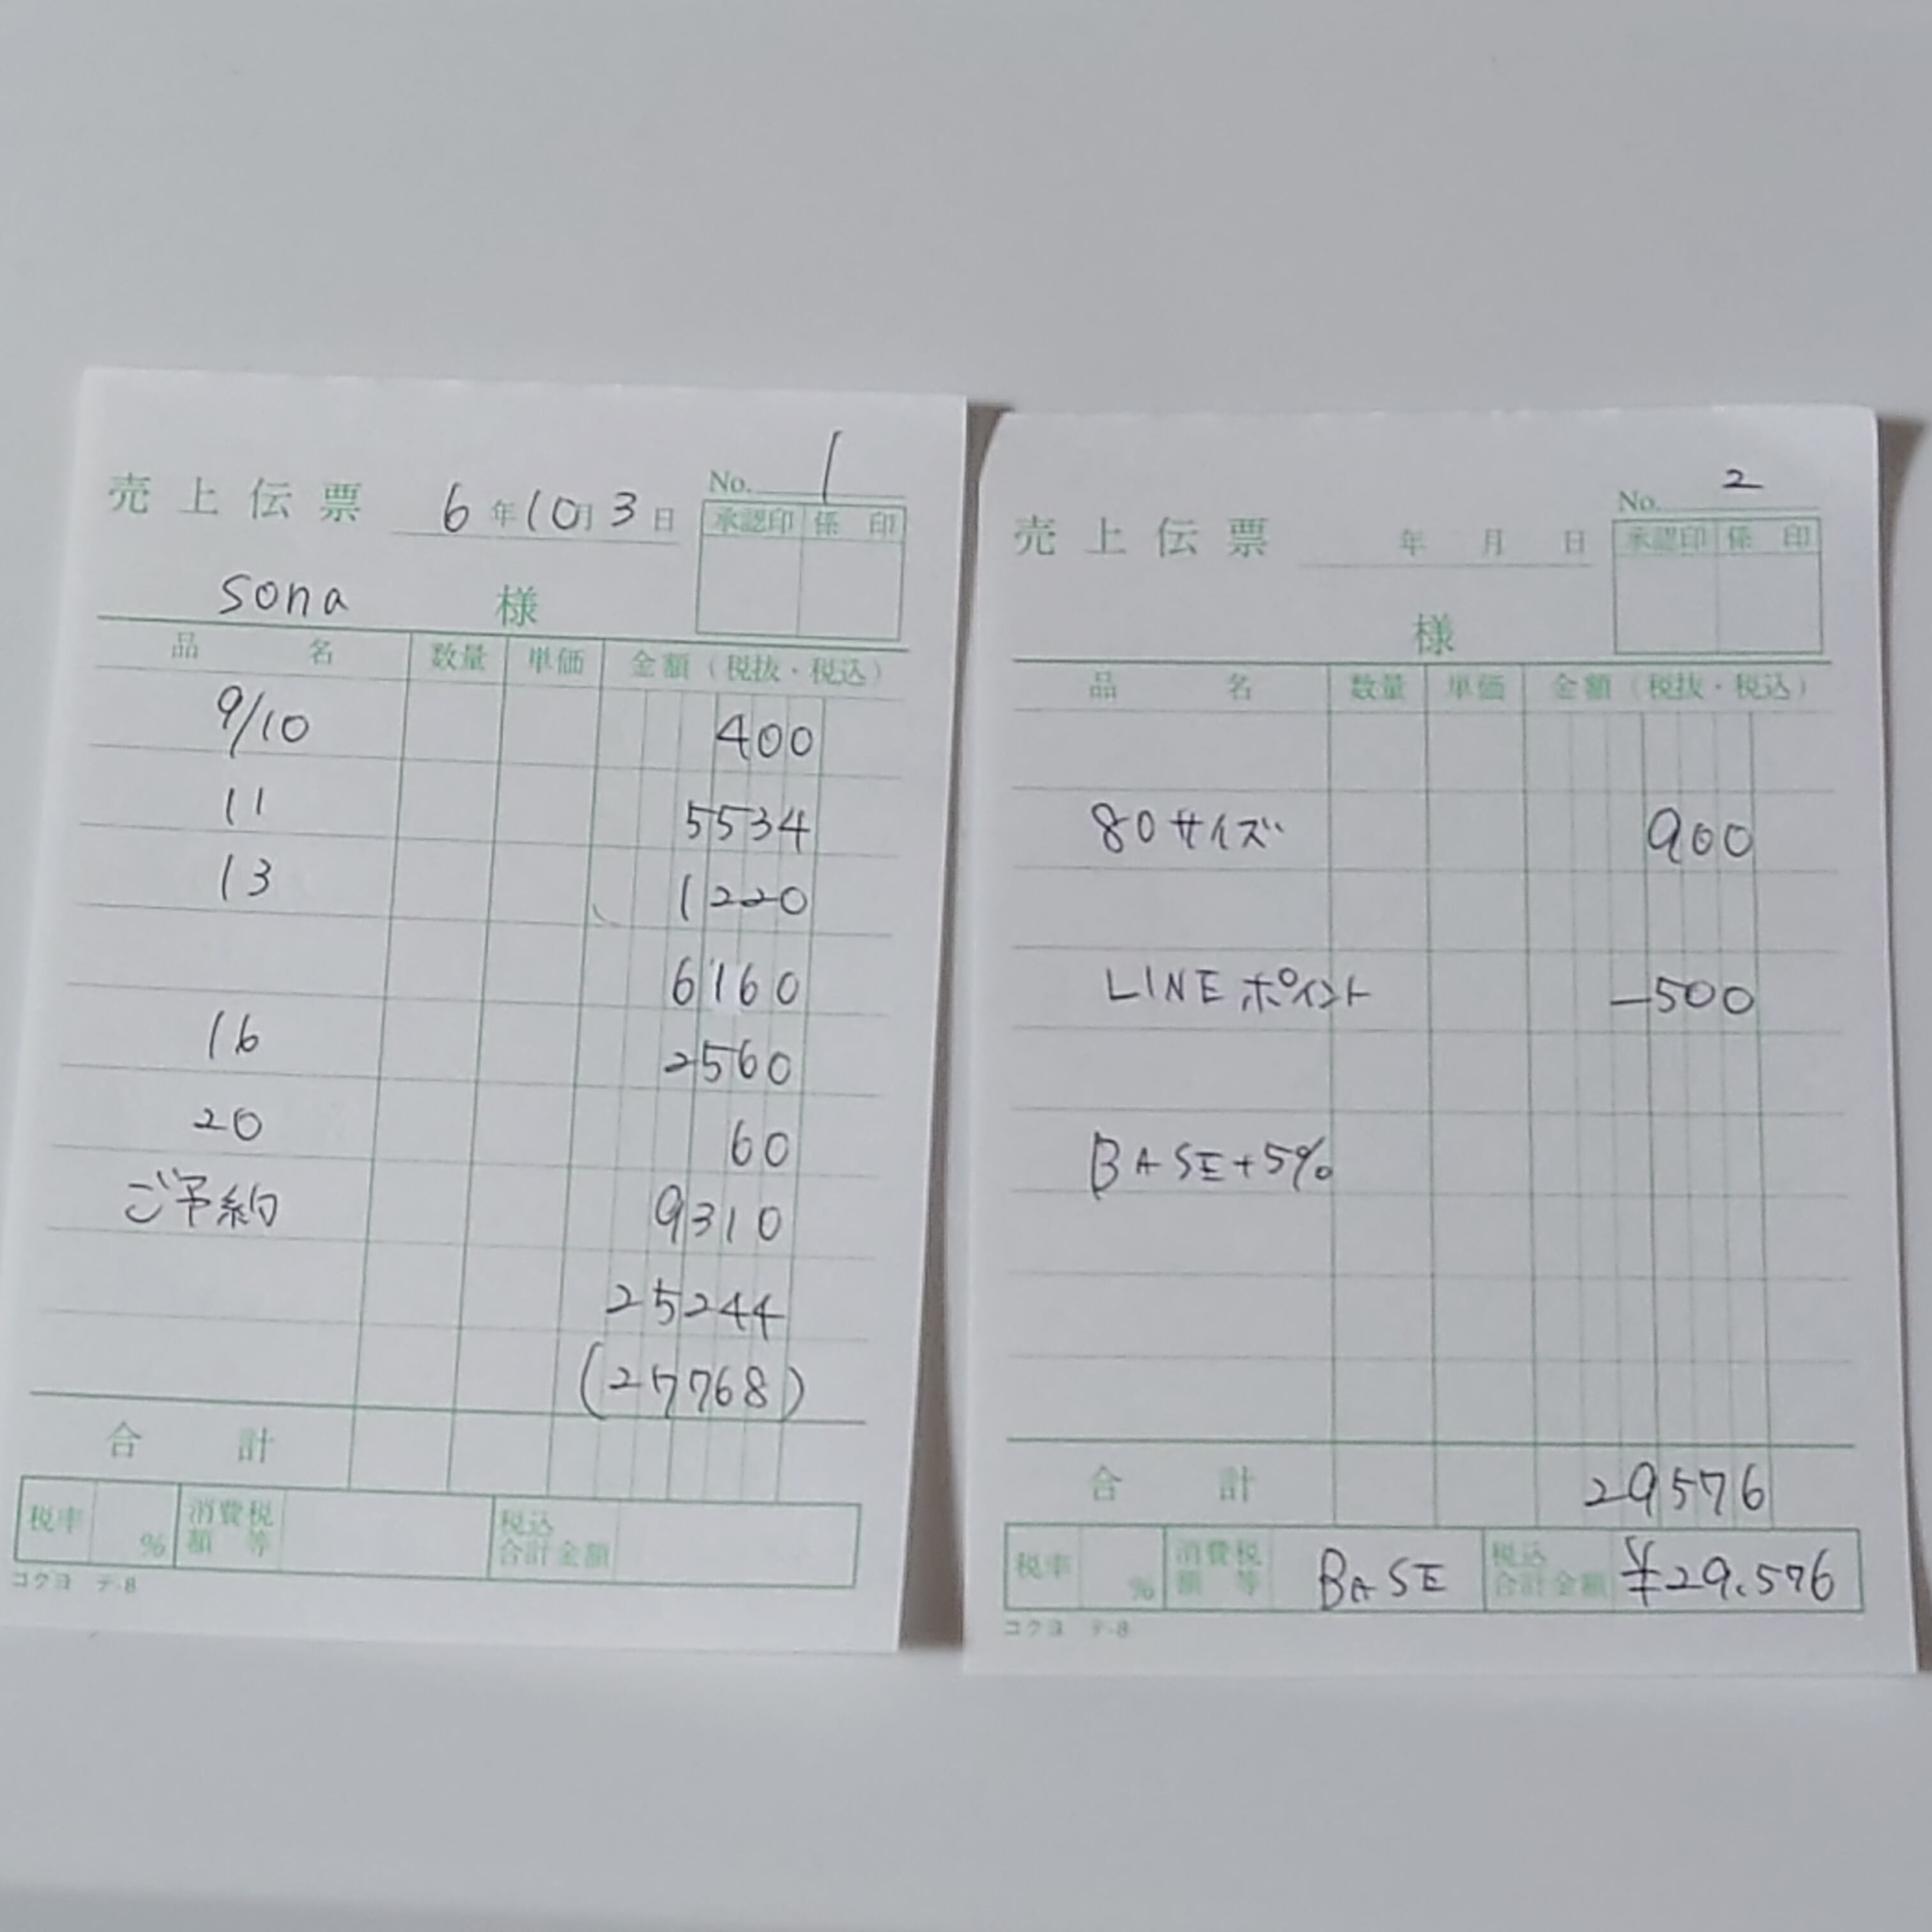 No. 1
売上伝票 6年10月3日
承認印 係印
sona 様
品名 数量 単価 金額(税抜・税込)
9/10 400
11 5534
13 1220
6160
16 2560
20 60
ご予約 9310
25244
(27768)
合計
税率 % 消費税額等 税込合計金額
コクヨ テ-8
No. 2
売上伝票 年 月 日
承認印 係印
様
品名 数量 単価 金額(税抜・税込)
80サイズ 900
LINEポイント -500
BASE+5%
合計 29576
税率 % 消費税額等 BASE 税込合計金額 ¥29.576
コクヨ テ-8